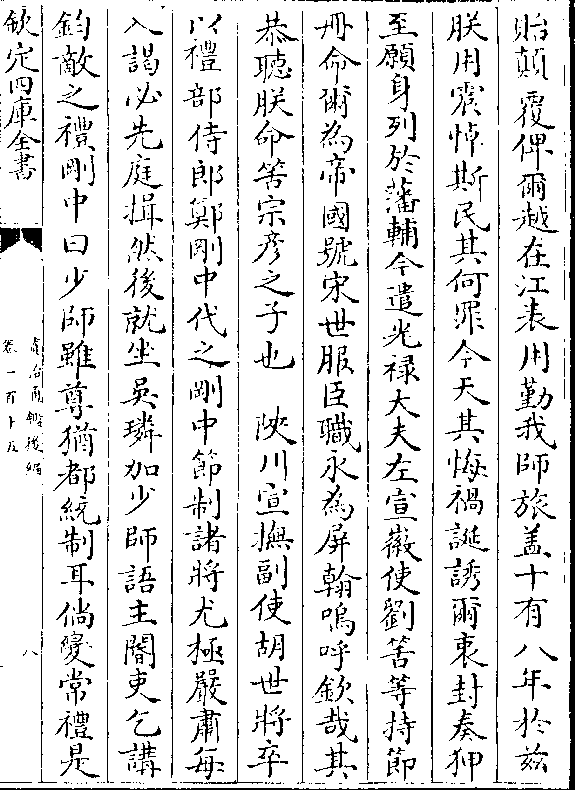 貽顛覆俾爾越在江表用勤我師旅盖十有八年於兹
朕用震悼斯民其何罪今天其悔禍誕誘爾衷封奏狎
至願身列於藩輔今遣光禄大夫左宣徽使劉筈等持節
冊命爾為帝國號宋世服臣職永為屏翰嗚呼欽哉其
恭聽朕命筈宗彦之子也　陜川宣撫副使胡世將卒
以禮部侍郎鄭剛中代之剛中節制諸將尤極嚴肅每
入謁必先庭揖然後就坐吳璘加少師語主閽吏乞講
鈞敵之禮剛中曰少師雖尊猶都統制耳倘變常禮是
欽定四庫全書
資治通鑑後編
卷一百十五
八